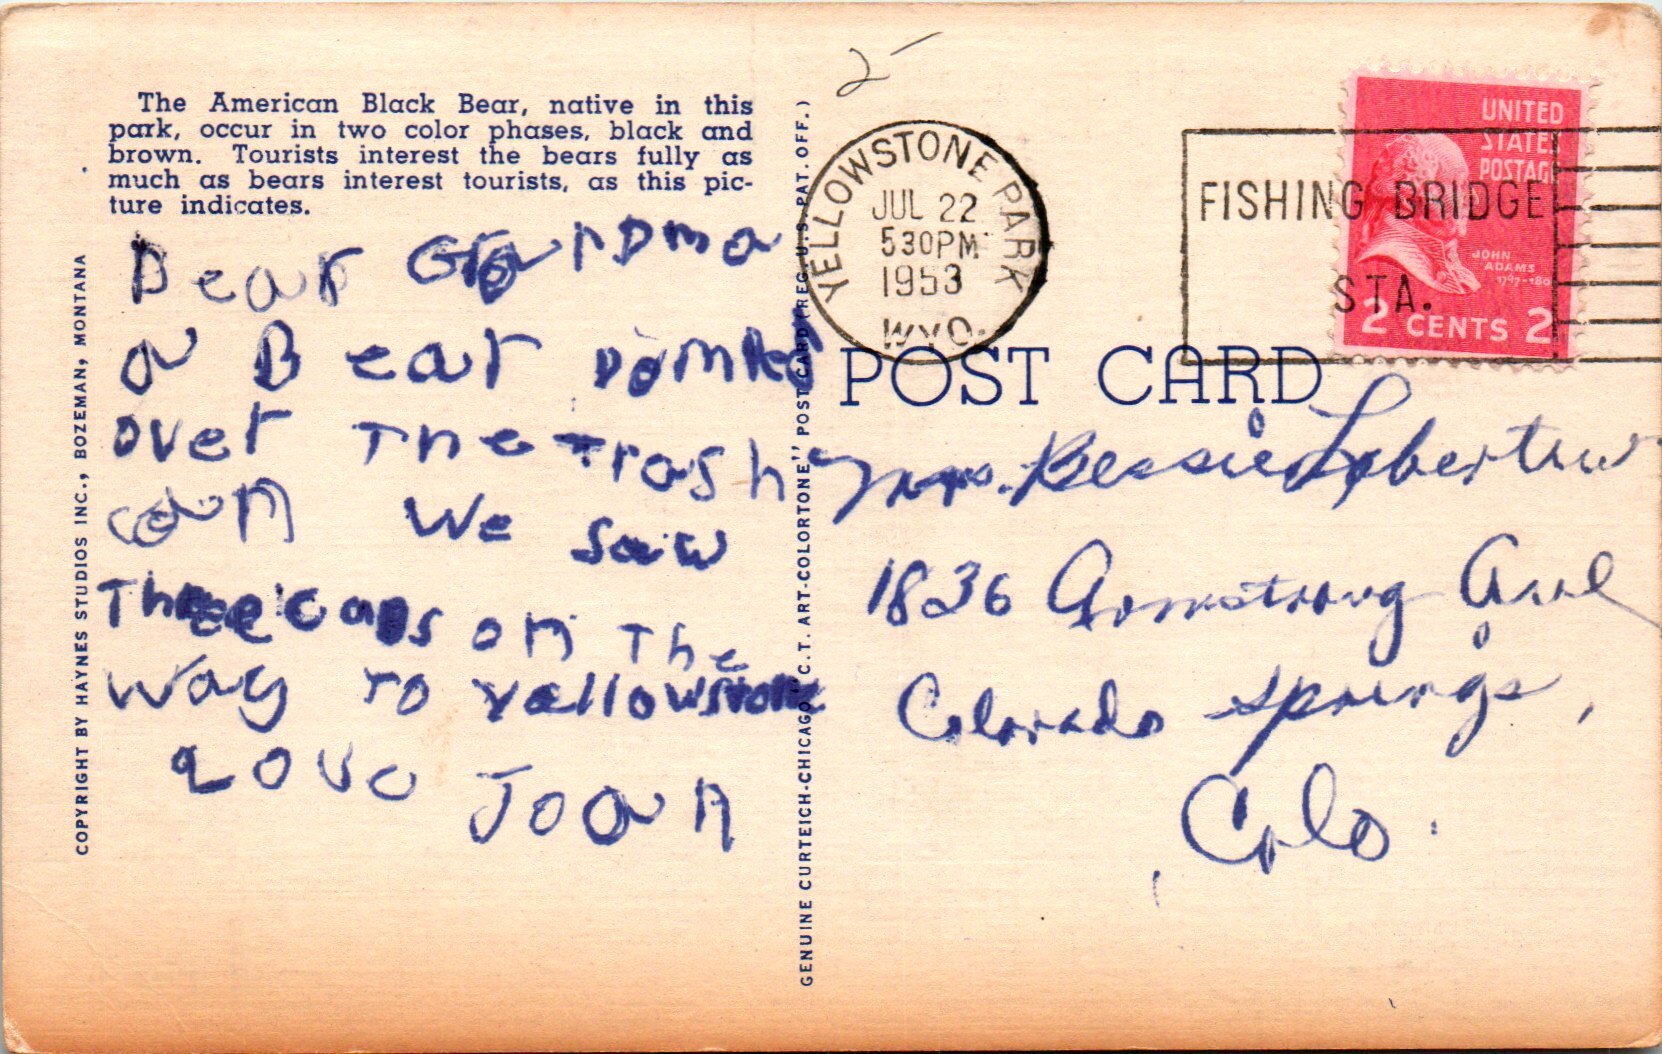 The American Black Bear, native in this
park, occur in two color phases, black and
brown. Tourists interest the bears fully as
much as bears interest tourists, as this pic-
ture indicates.
Dear Grandma
a Bear
over The Trash
can We saw
Three on The
way To Yellowstone
Love Joan
COPYRIGHT BY HAYNES STUDIOS INC., BOZEMAN, MONTANA
GENUINE CURTEICH-CHICAGO "C.T. ART-COLORTONE" POST CARD (REG. U.S. PAT. OFF.)
2-
YELLOWSTONE PARK
JUL 22
530PM
1953
WYO.
FISHING BRIDGE
STA.
UNITED
STATES
POSTAGE
JOHN
ADAMS
1797-180
2 CENTS 2
POST CARD
Mrs. Bessie
1836 Armstrong Ave
Colorado Springs,
Colo.